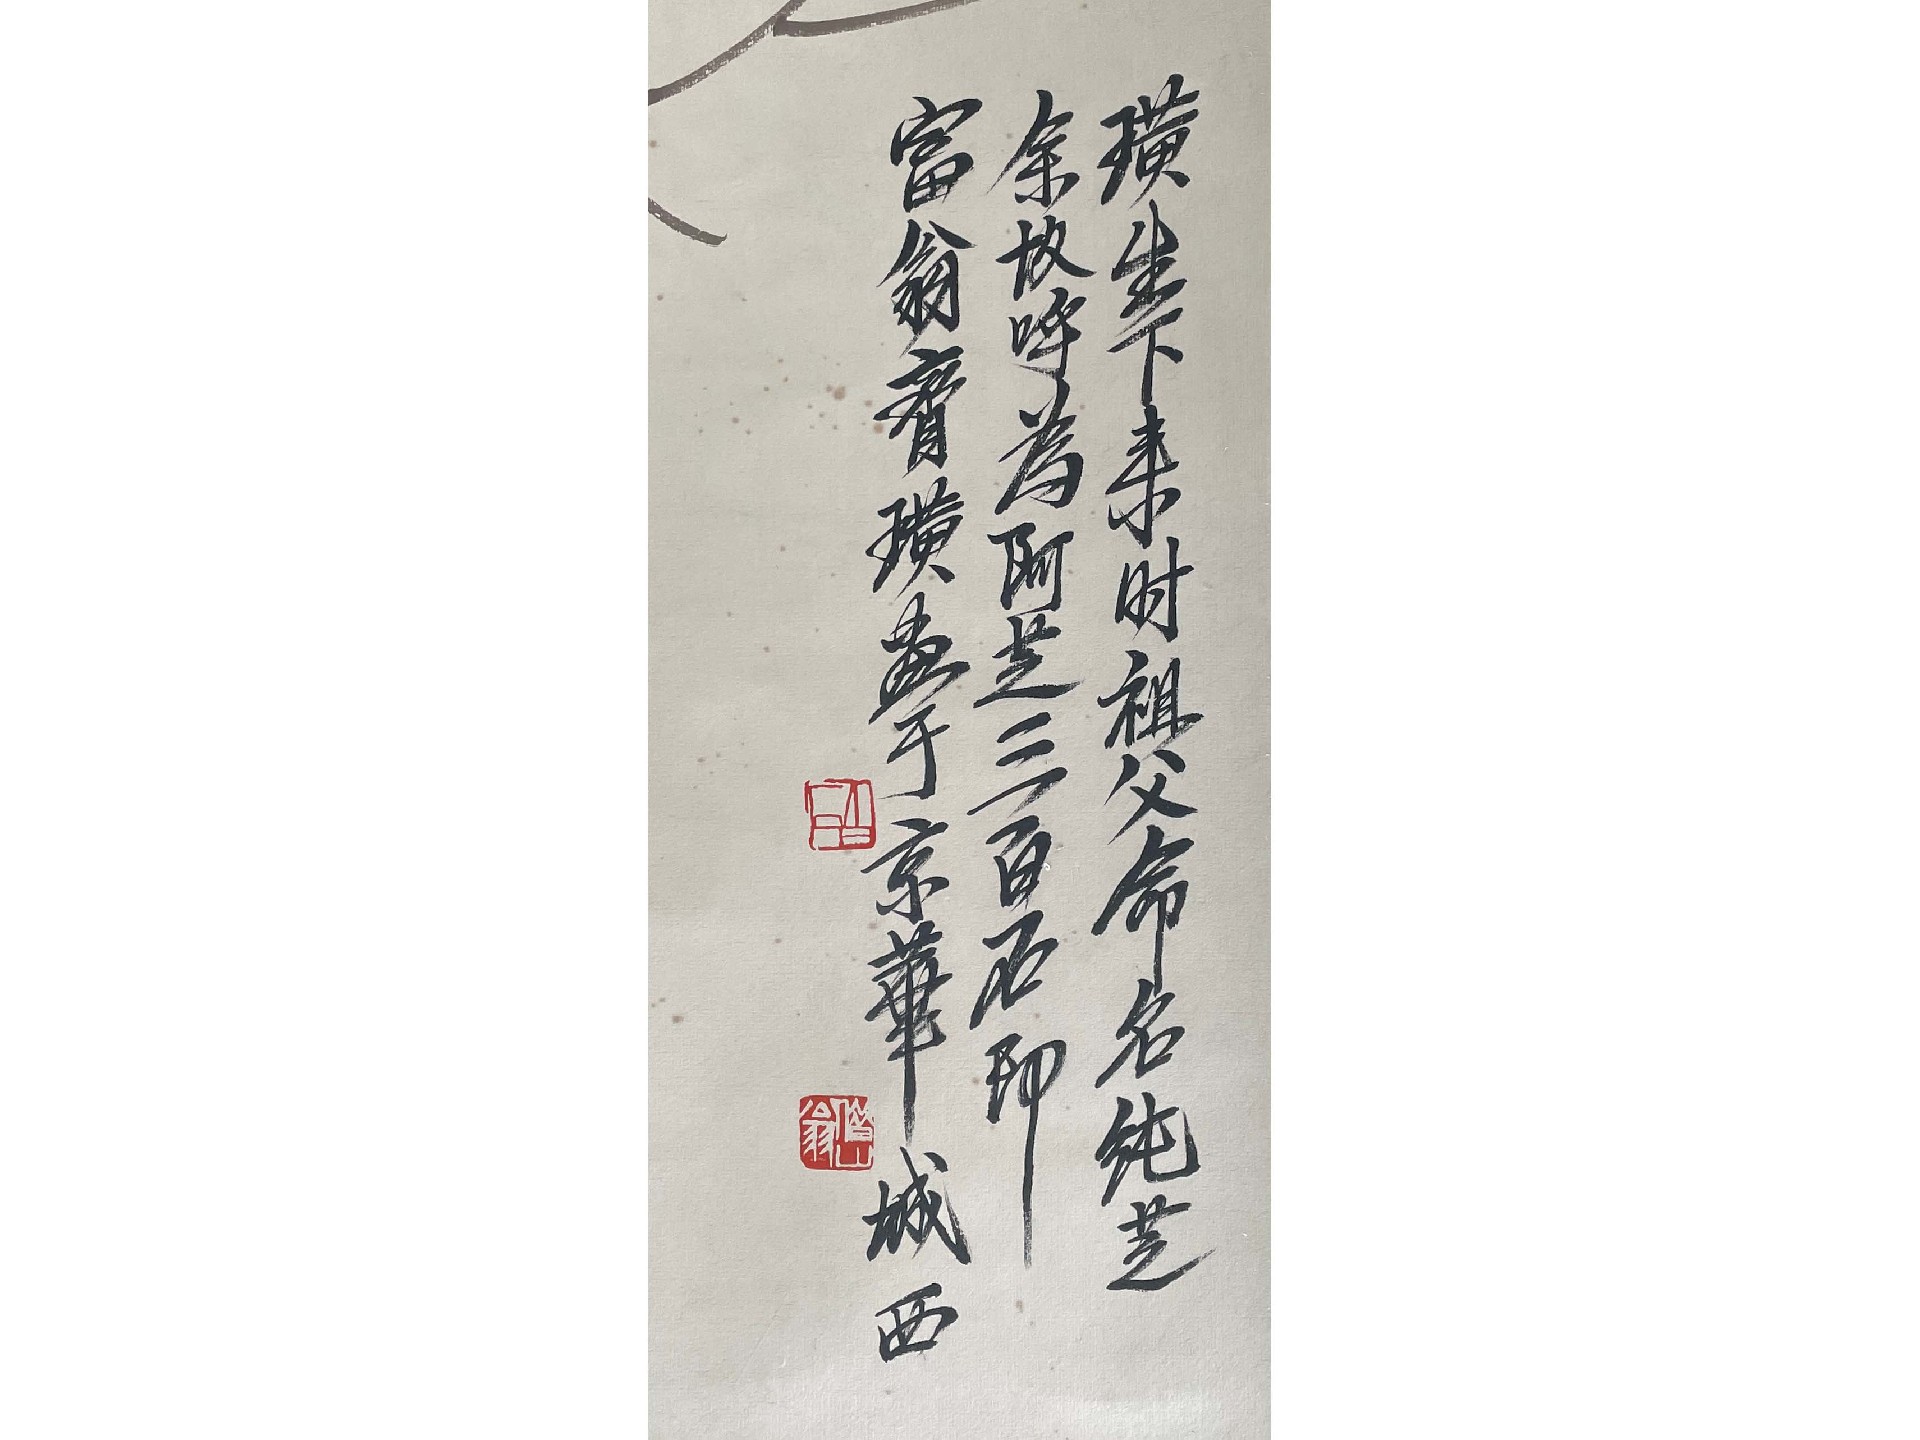 璜生下来时祖父命名纯芝
余故呼为阿芝三百石印
富翁齊璜畫于京華城西
借山翁